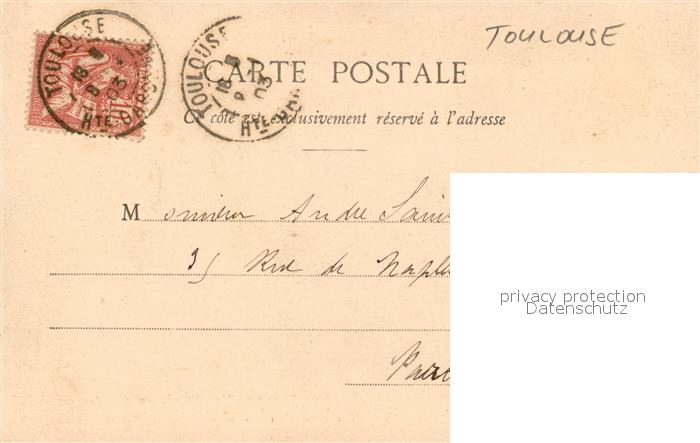 TOULOUSE
TOULOUSE
TOULOUSE
18
03
HTE GARONNE
18
03
HTE
CARTE POSTALE
Ce côté est exclusivement réservé à l'adresse
Monsieur André Sain
35 Rue de Naples
Paris
privacy protection
Datenschutz